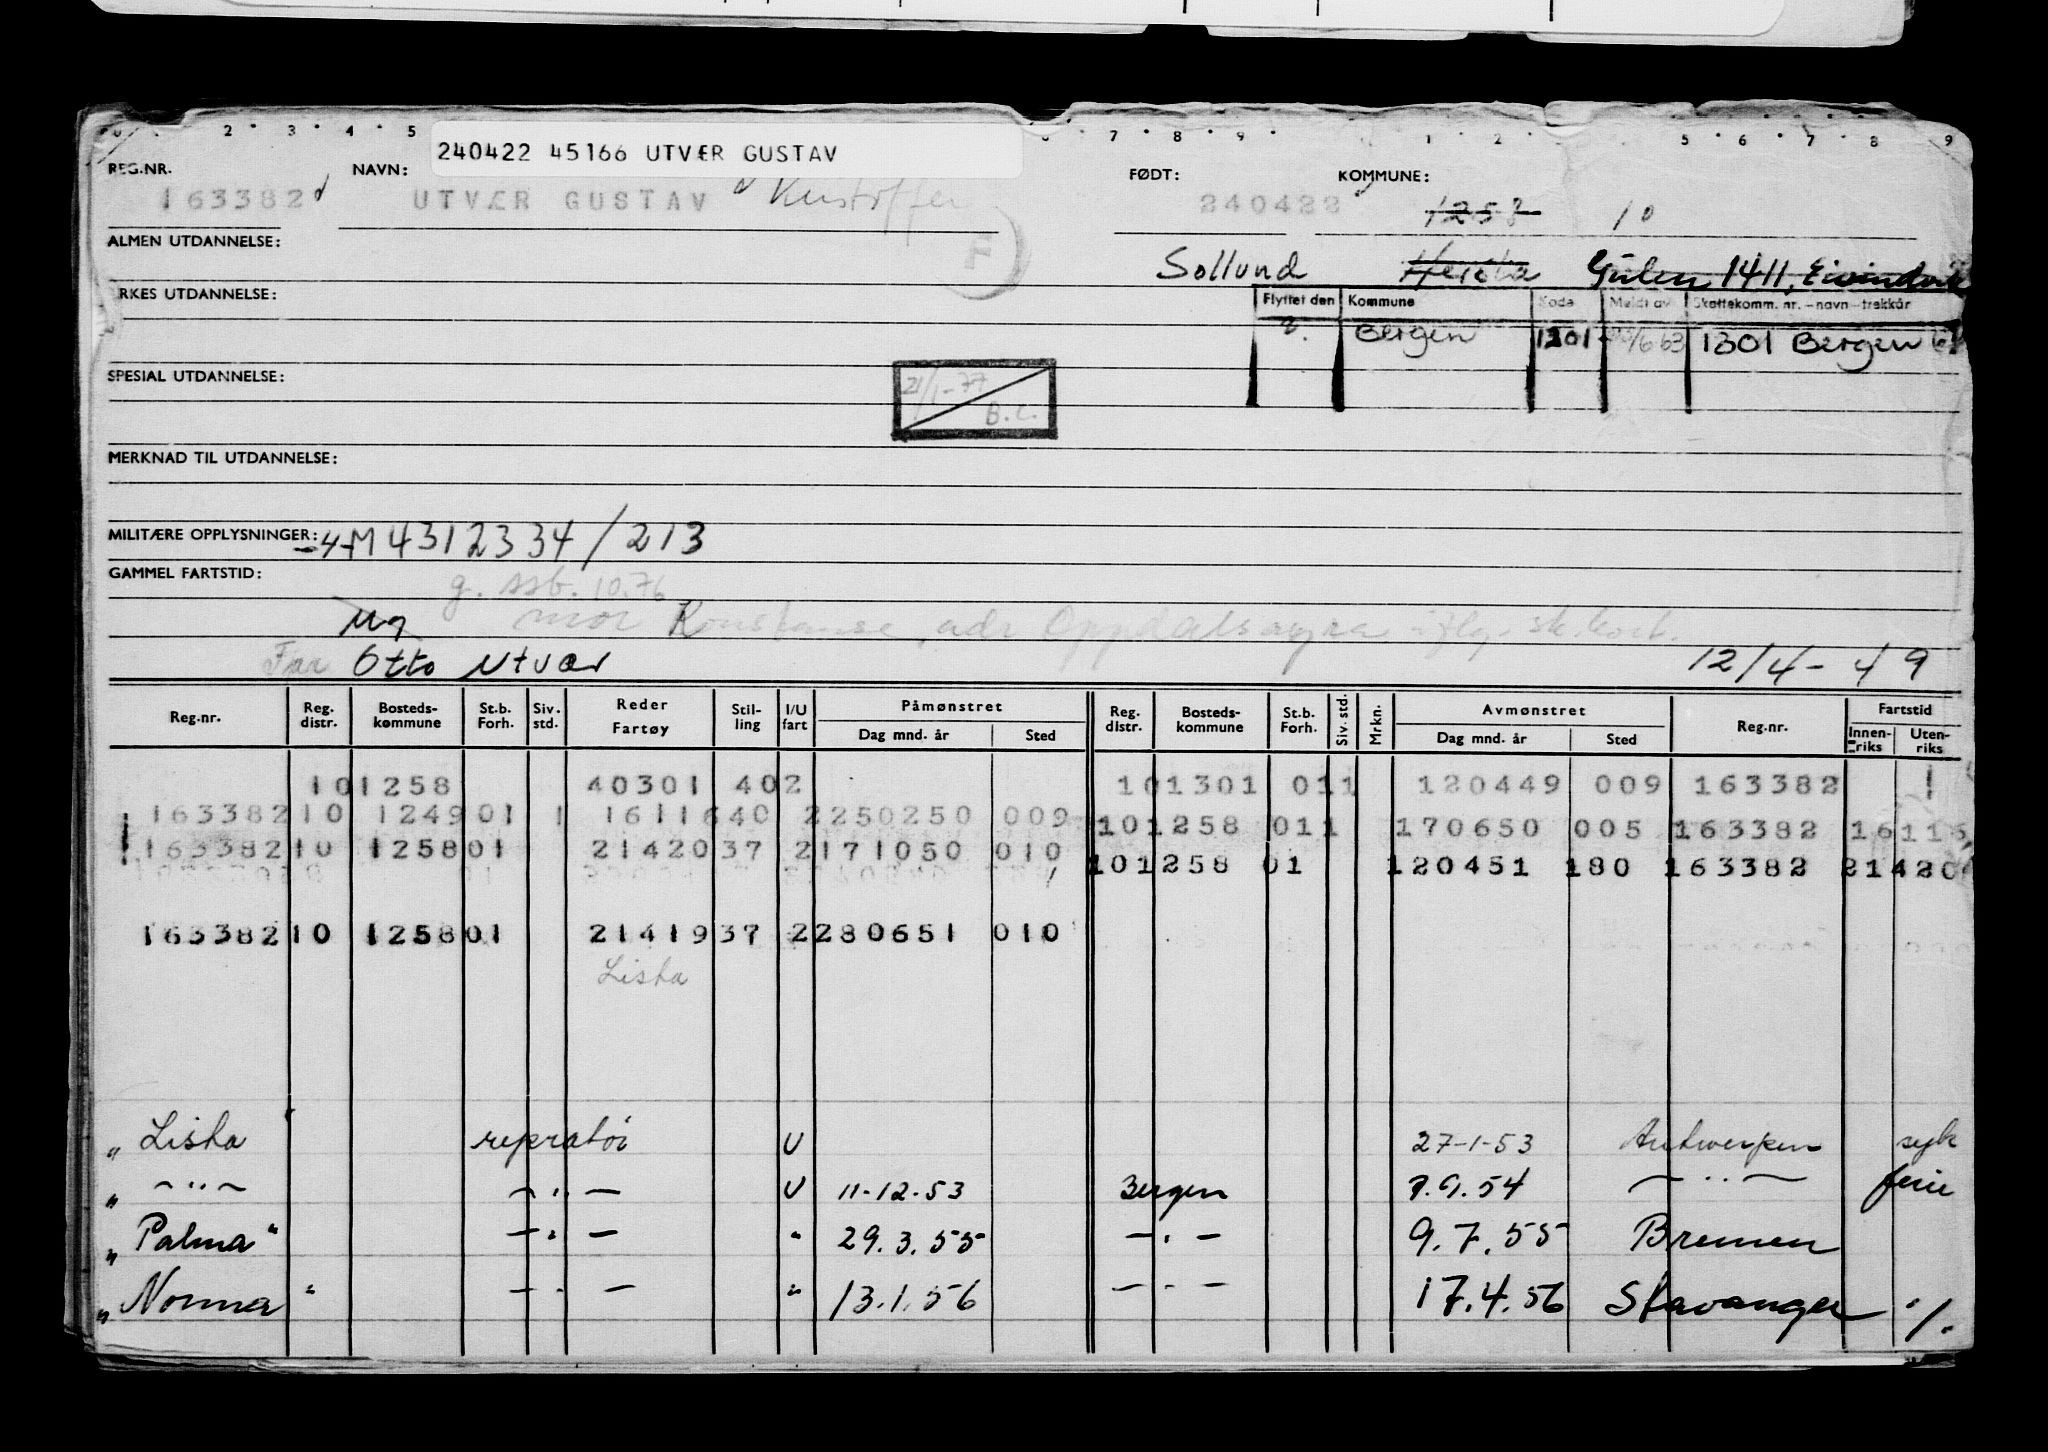 2 · 3 · 4 · 5 7 · 8 · 9 · 1 2 5 · 6 · 7 · 8 9
240422 45166 UTVÆR GUSTAV
REG.NR. NAVN: FØDT: KOMMUNE:
163382 UTVÆR GUSTAV Kristoffer 240422 1258 10
ALMEN UTDANNELSE:
F
Sollund Herdla Gulen 1411, Eivindvik
RKES UTDANNELSE:
Flyttet den Kommune Kode Meldt av Skattekomm. nr. – navn – trekkår
?. Bergen 1301 /6 63 1301 Bergen
SPESIAL UTDANNELSE:
21/1-77
B.C.
MERKNAD TIL UTDANNELSE:
MILITÆRE OPPLYSNINGER: -4-M 4312334/213
GAMMEL FARTSTID:
g. ssb. 10.76
Ug mor Konstanse, adr Oppdalsøyra
Far Otto Utvær 12/4-49
Reg.nr. Reg. distr. Bosteds-kommune St.b. Forh. Siv. std. Reder Fartøy Stil-ling I/U fart Påmønstret Dag mnd. år Sted Reg. distr. Bosteds-kommune St.b. Forh. Siv. std. Mrkn. Avmønstret Dag mnd. år Sted Reg.nr. Fartstid Innen-riks Uten-riks
101258 40301 402 101301 011 120449 009 163382 1
163382 10 1249 01 1 1611640 2250250 009 101258 011 170650 005 163382 16116
163382 10 1258 01 2142037 2171050 010 101258 01 120451 180 163382 21420
163382 10 1258 01 2141937 2280651 010
Lista
" Lista " repratør U 27-1-53 Antwerpen syk
" — " — — " — U 11-12-53 Bergen 7.9.54 — " — ferie
" Palma " — " — " 29.3.55 — " — 9.7.55 Bremen
" Norma " — " — " 13.1.56 — " — 17.4.56 Stavanger %.